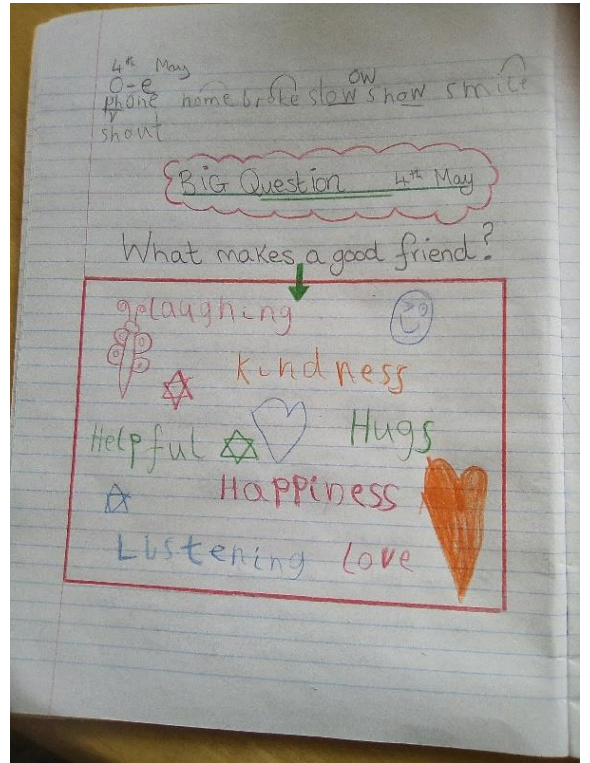 4th May
o-e
ow
phone home broke slow show smile
shout
BiG Question 4th May
What makes a good friend?
laughing
kindness
Helpful Hugs
Happiness
Listening Love